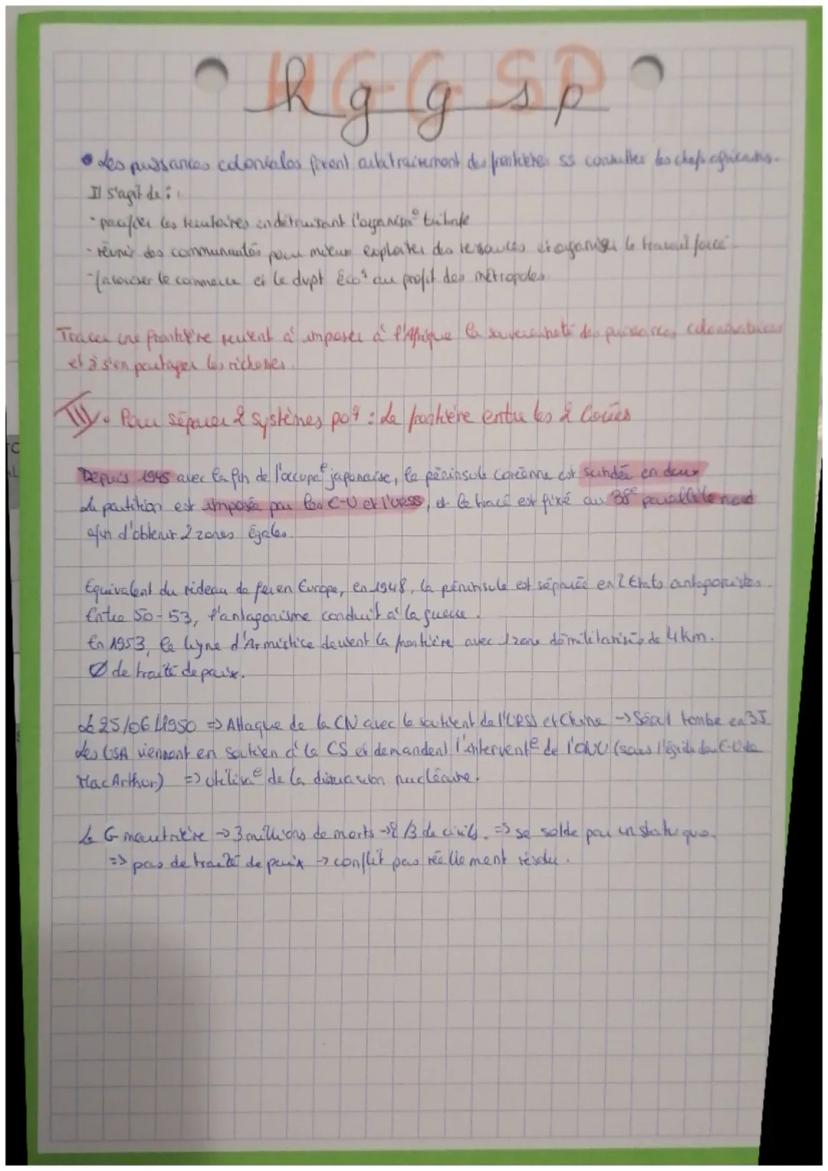 HGGSP
hggsp
• Les puissances coloniales fixent arbitrairement des frontières ss consulter les chefs africains.
Il s'agit de :
- pacifier les territoires en détruisant l'organisa° tribale
- réunir des communautés pour mieux exploiter des ressources et organiser le travail forcé
- favoriser le commerce et le dvpt éco° au profit des métropoles
Tracer une frontière revient à imposer à l'Afrique la souveraineté des puissances colonisatrices
et à s'en partager les richesses.
III. Pour séparer 2 systèmes po° : la frontière entre les 2 Corées
Depuis 1945 avec la fin de l'occupa° japonaise, la péninsule coréenne est scindée en deux
La partition est imposée par les E-U et l'URSS, et le tracé est fixé au 38e parallèle nord
afin d'obtenir 2 zones égales.
Equivalent du rideau de fer en Europe, en 1948, la péninsule est séparée en 2 Etats antagonistes.
Entre 50-53, l'antagonisme conduit à la guerre.
En 1953, la ligne d'Armistice devient la frontière avec 1 zone démilitarisée de 4 km.
Ø de traité de paix.
Le 25/06/1950 => Attaque de la CN avec le soutient de l'URSS et Chine -> Séoul tombe en 3J
Les USA viennent en soutien à la CS et demandent l'intervent° de l'ONU (sous l'égide du
MacArthur) => utilisa° de la dissuasion nucléaire.
La G meurtrière -> 3 millions de morts -> 2/3 de civils. => se solde par un statu quo.
=> pas de traité de paix -> conflit pas réellement résolu.